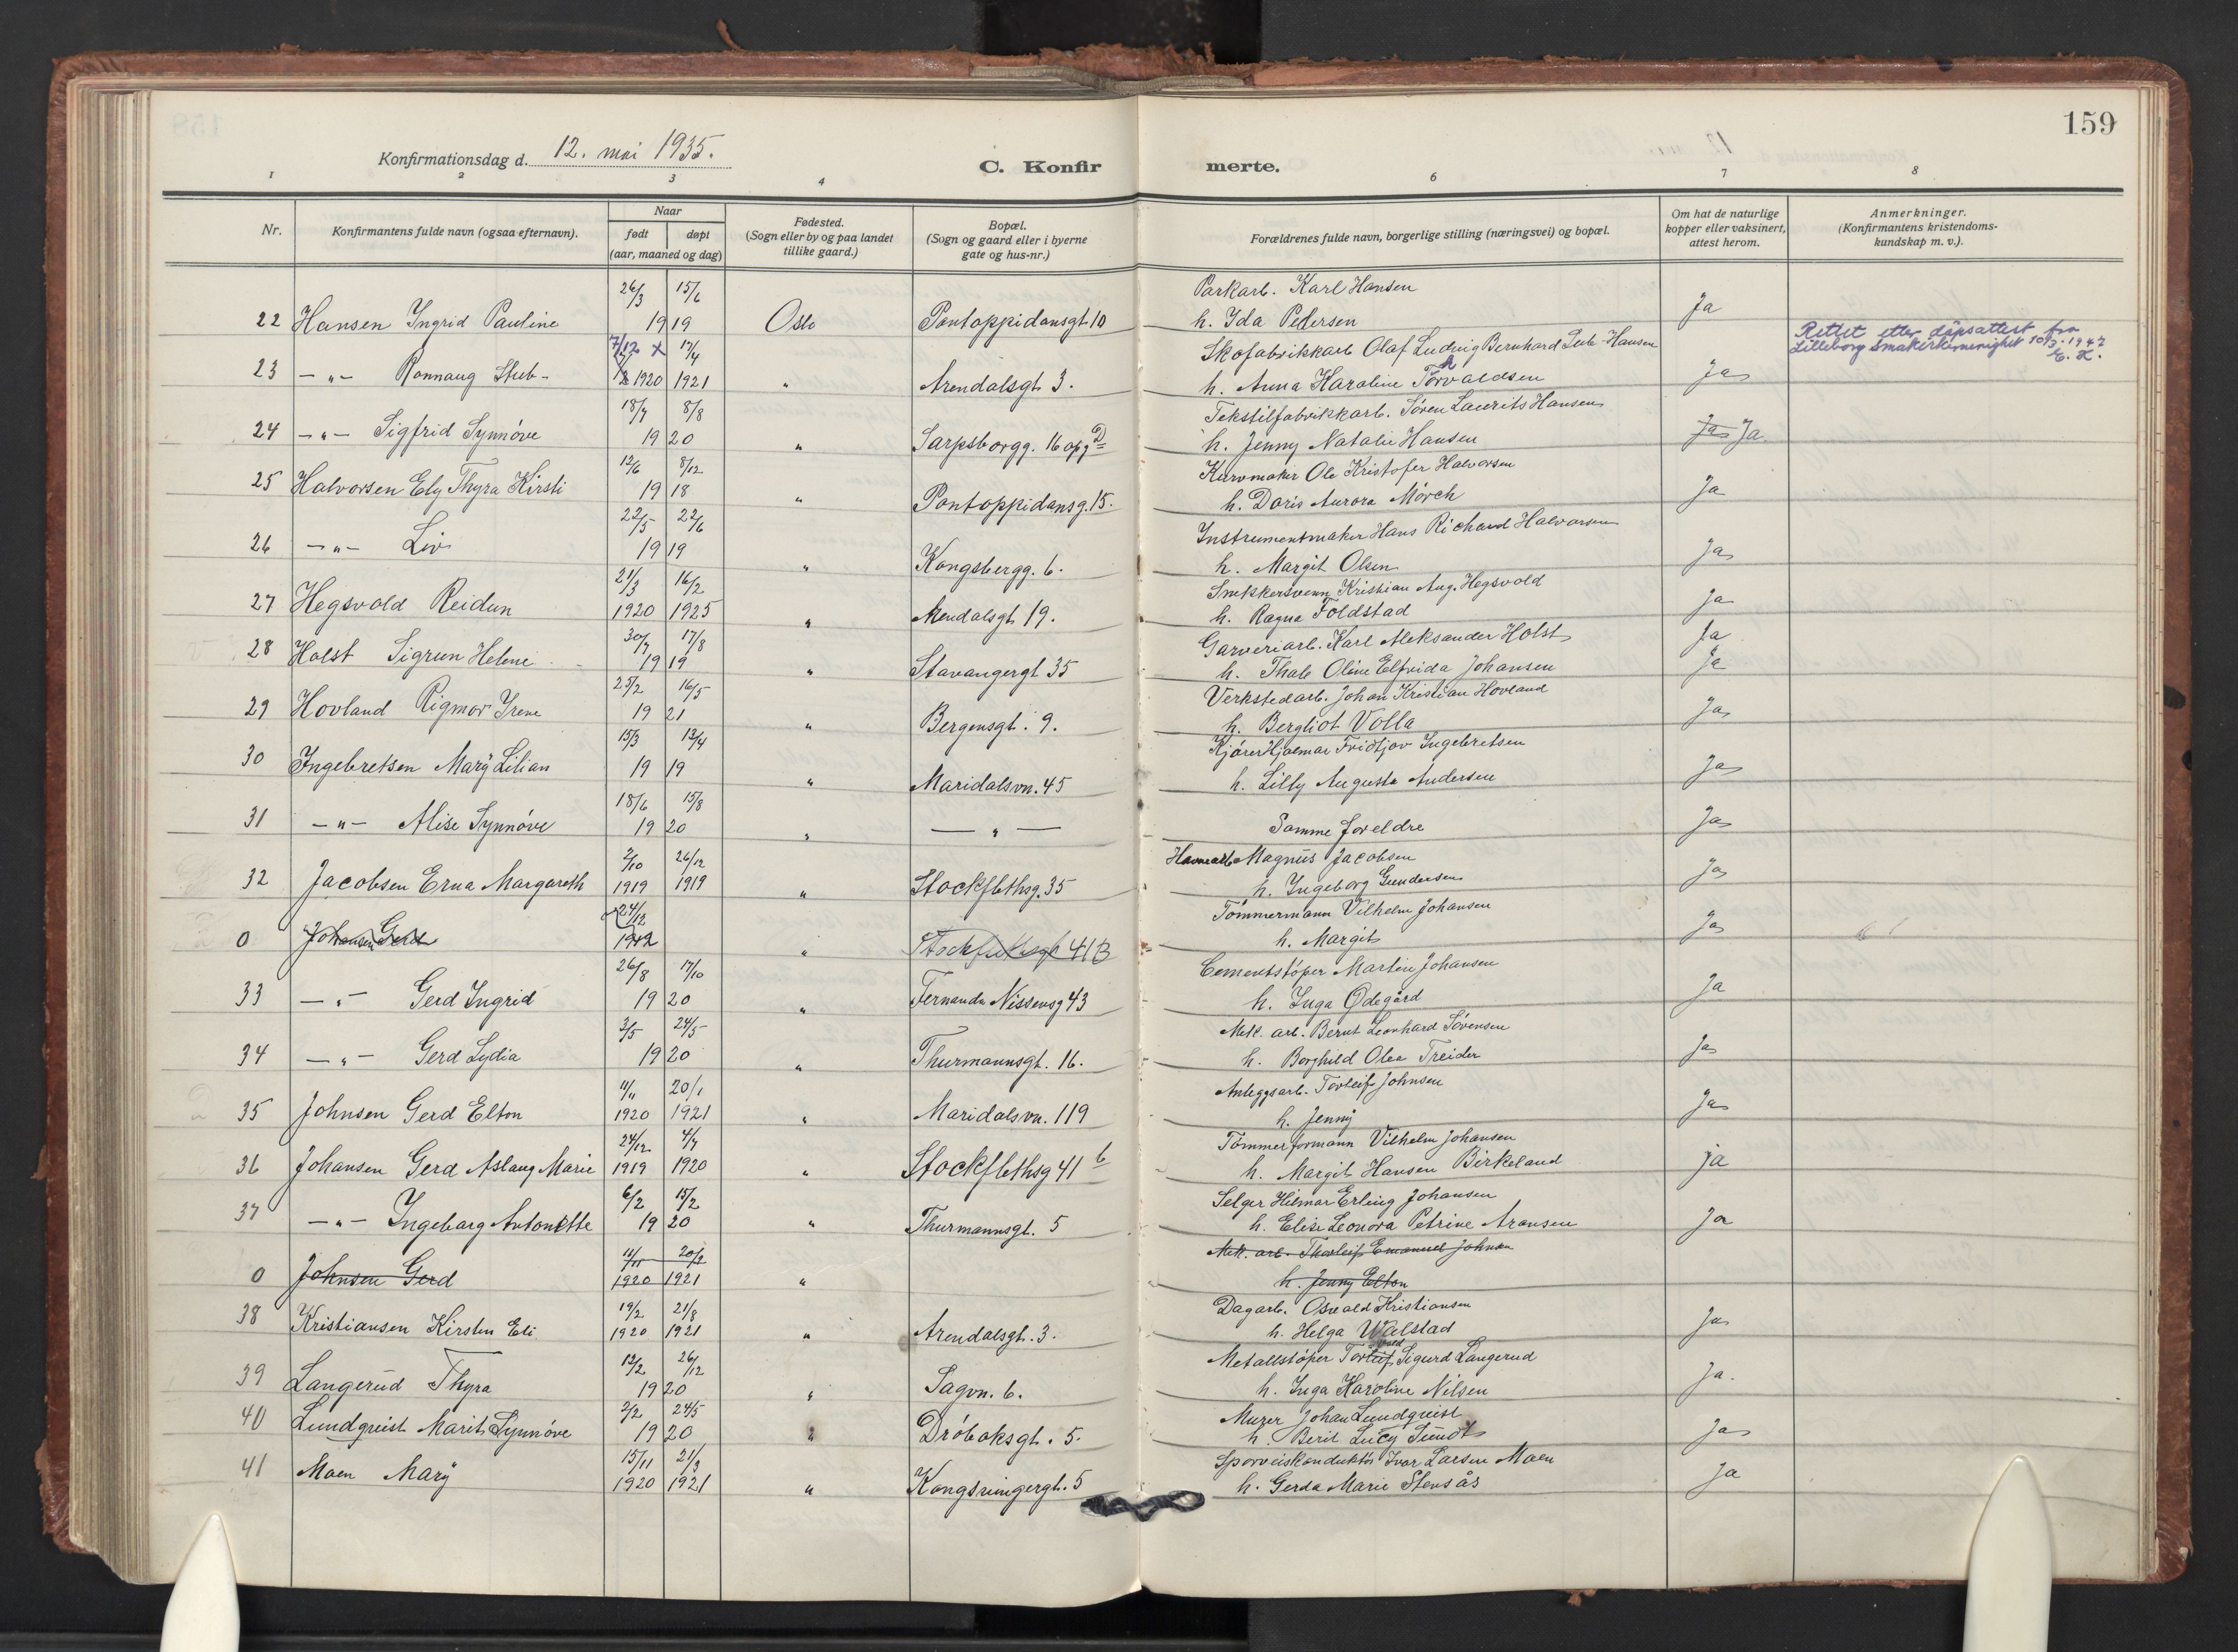 159
Konfirmationsdag d. 12. mai 1935.
C. Konfir merte.
1 2 3 4 6 7 8
Nr.
Konfirmantens fulde navn (ogsaa efternavn).
Naar
født døpt
(aar, maaned og dag)
Fødested.
(Sogn eller by og paa landet
tillike gaard.)
Bopæl.
(Sogn og gaard eller i byerne
gate og hus-nr.)
Forældrenes fulde navn, borgerlige stilling (næringsvei) og bopæl.
Om hat de naturlige
kopper eller vaksinert,
attest herom.
Anmerkninger.
(Konfirmantens kristendoms-
kundskap m. v.).
26/3 15/6 Parkarb. Karl Hansen
22 Hansen Ingrid Pauline 1919 Oslo Pontoppidansgt 10 h. Ida Pedersen Ja
7/12 x 17/4 Skofabrikkarb Olaf Ludvig Bernhard Stub-Hansen
23 -"- Rønnaug Stub- 1920 1921 " Arendalsgt. 3. h. Anna Karoline Torvaldsen Ja
Rettet etter dåpsattest fra
Lilleborg småkirkemenighet 10/3-1947
E. H.
18/7 8/8 Tekstilfabrikkarb. Søren Laurits Hansen
24 -"- Sigfrid Synnøve 1920 " Sarpsborgg. 16 opg D h. Jenny Natalie Hansen Ja Ja.
12/6 8/12 Kurvmaker Ole Kristofer Halvorsen
25 Halvorsen Ely Thyra Kirsti 1918 " Pontoppidansg. 15. h. Doris Aurora Mørch Ja
22/5 22/6 Instrumentmaker Hans Richard Halvorsen
26 -"- Liv 1919 " Kongsbergg. 6. h. Margit Olsen Ja
21/3 16/2 Snekkersvenn Kristian Aug. Hegsvold
27 Hegsvold Reidun 1920 1925 " Arendalsgt 19. h. Ragna Foldstad Ja
30/7 17/8 Garveriarb. Karl Aleksander Holst Ja
28 Holst Sigrun Helene 1919 " Stavangergt 35 h. Thale Oline Elfrida Johansen Ja
25/2 16/5 Verkstedarb. Johan Kristian Hovland
29 Hovland Rigmor Irene 1921 " Bergensgt. 9. h. Bergliot Volla Ja
15/3 13/4 Kjører Hjalmar Fridtjov Ingebretsen
30 Ingebretsen Mary Lilian 1919 " Maridalsvn. 45 h. Lilly Augusta Andersen Ja
18/6 15/8
31 -"- Alise Synnøve 1920 " -"- Samme foreldre Ja
2/10 26/12 Havnearb Magnus Jacobsen
32 Jacobsen Erna Margareth 1919 1919 " Stockflethsg. 35 h. Ingeborg Gundersen Ja
24/12 Tømmermann Vilhelm Johansen
0 Johansen Gerd " Stockflethsgt 41B h. Margit Ja
26/8 17/10 Cementstøper Martin Johansen
33 -"- Gerd Ingrid 1920 " Fernanda Nissensg 43 h. Inga Ødegård Ja
3/5 24/5 Mek. arb. Bernt Leonhard Sørensen
34 -"- Gerd Lydia 1920 " Thurmannsgt. 16. h. Borghild Olea Treider Ja
11/11 20/1 Anleggsarb. Torleif Johnsen
35 Johnsen Gerd Elton 1920 1921 " Maridalsvn. 119 h. Jenny Ja
24/12 4/7 Tømmerformann Vilhelm Johansen
36 Johansen Gerd Aslaug Marie 1919 1920 " Stockflethsg 41 b h. Margit Hansen Birkeland ja
6/2 15/2 Selger Hilmar Erling Johansen
37 -"- Ingeborg Antonette 1920 " Thurmannsgt. 5 h. Elise Leonora Petrine Aronsen Ja
11/11 20/2 Mek. arb. Thorleif Emanuel Johnsen
0 Johnsen Gerd 1920 1921 " h. Jenny Elton
19/2 21/8 Dagarb. Osvald Kristiansen
38 Kristiansen Kirsten Eli 1920 1921 " Arendalsgt. 3. h. Helga Walstad Ja
12/2 26/12 Metallstøper Torleif vald Sigurd Langerud
39 Langerud Thyra 1920 " Sagvn. 6. h. Inga Karoline Nilsen Ja.
2/2 24/5 Murer Johan Lundqvist
40 Lundqvist Marit Synnøve 1920 " Drøbaksgt. 5. h. Berit Lucy Sundt Ja
15/11 21/3 Sporveiskonduktør Ivar Larsen Moen
41 Moen Mary 1920 1921 " Kongsvingergt. 5 h. Gerda Marie Stensås Ja